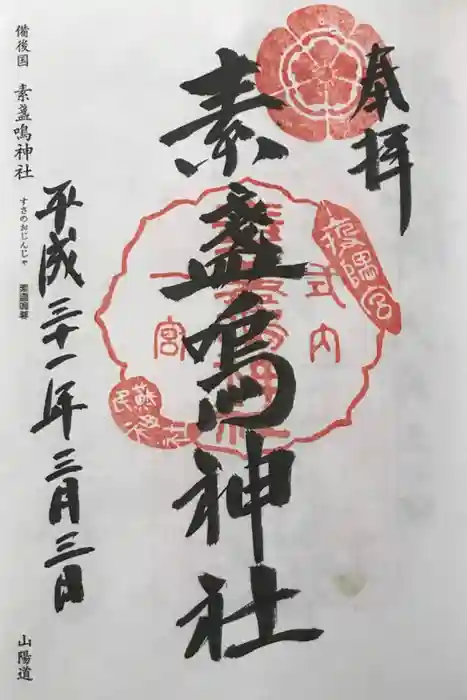 奉拝
素盞嗚神社
平成三十一年三月三日
備後国 素盞鳴神社
すさのおじんじゃ
山陽道
式内
一宮
蘇民